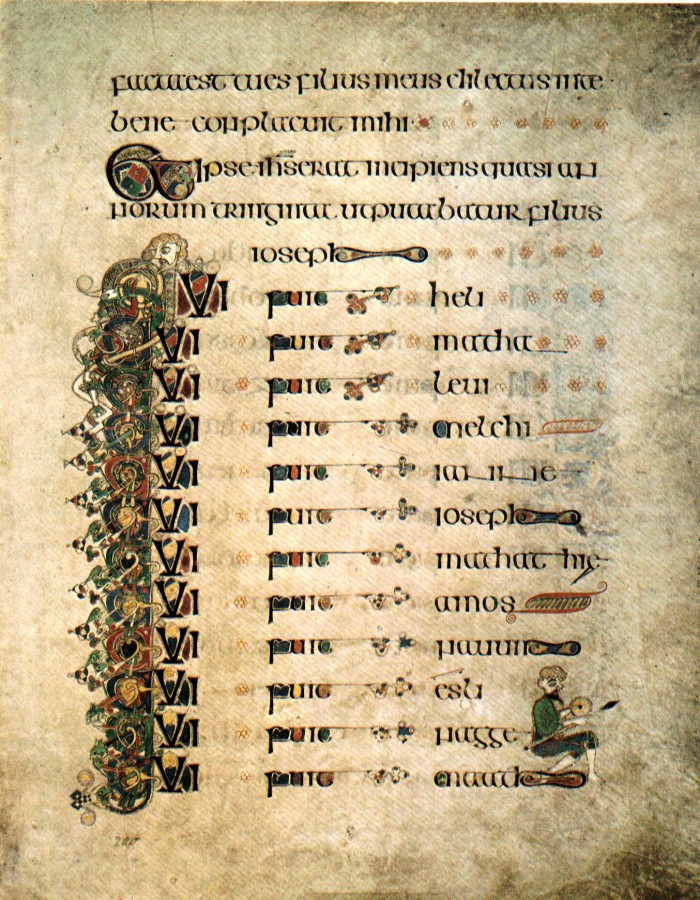 facta est tu es filius meus dilectus in te
bene conplacuit mihi
Et ipse ihs erat incipiens quasi an
norum triginta ut putabatur filius
ioseph
qui fuit heli
qui fuit matha
qui fuit leui
qui fuit melchi
qui fuit iannae
qui fuit ioseph
qui fuit mathathie
qui fuit amos
qui fuit nauum
qui fuit esli
qui fuit nagge
qui fuit maath